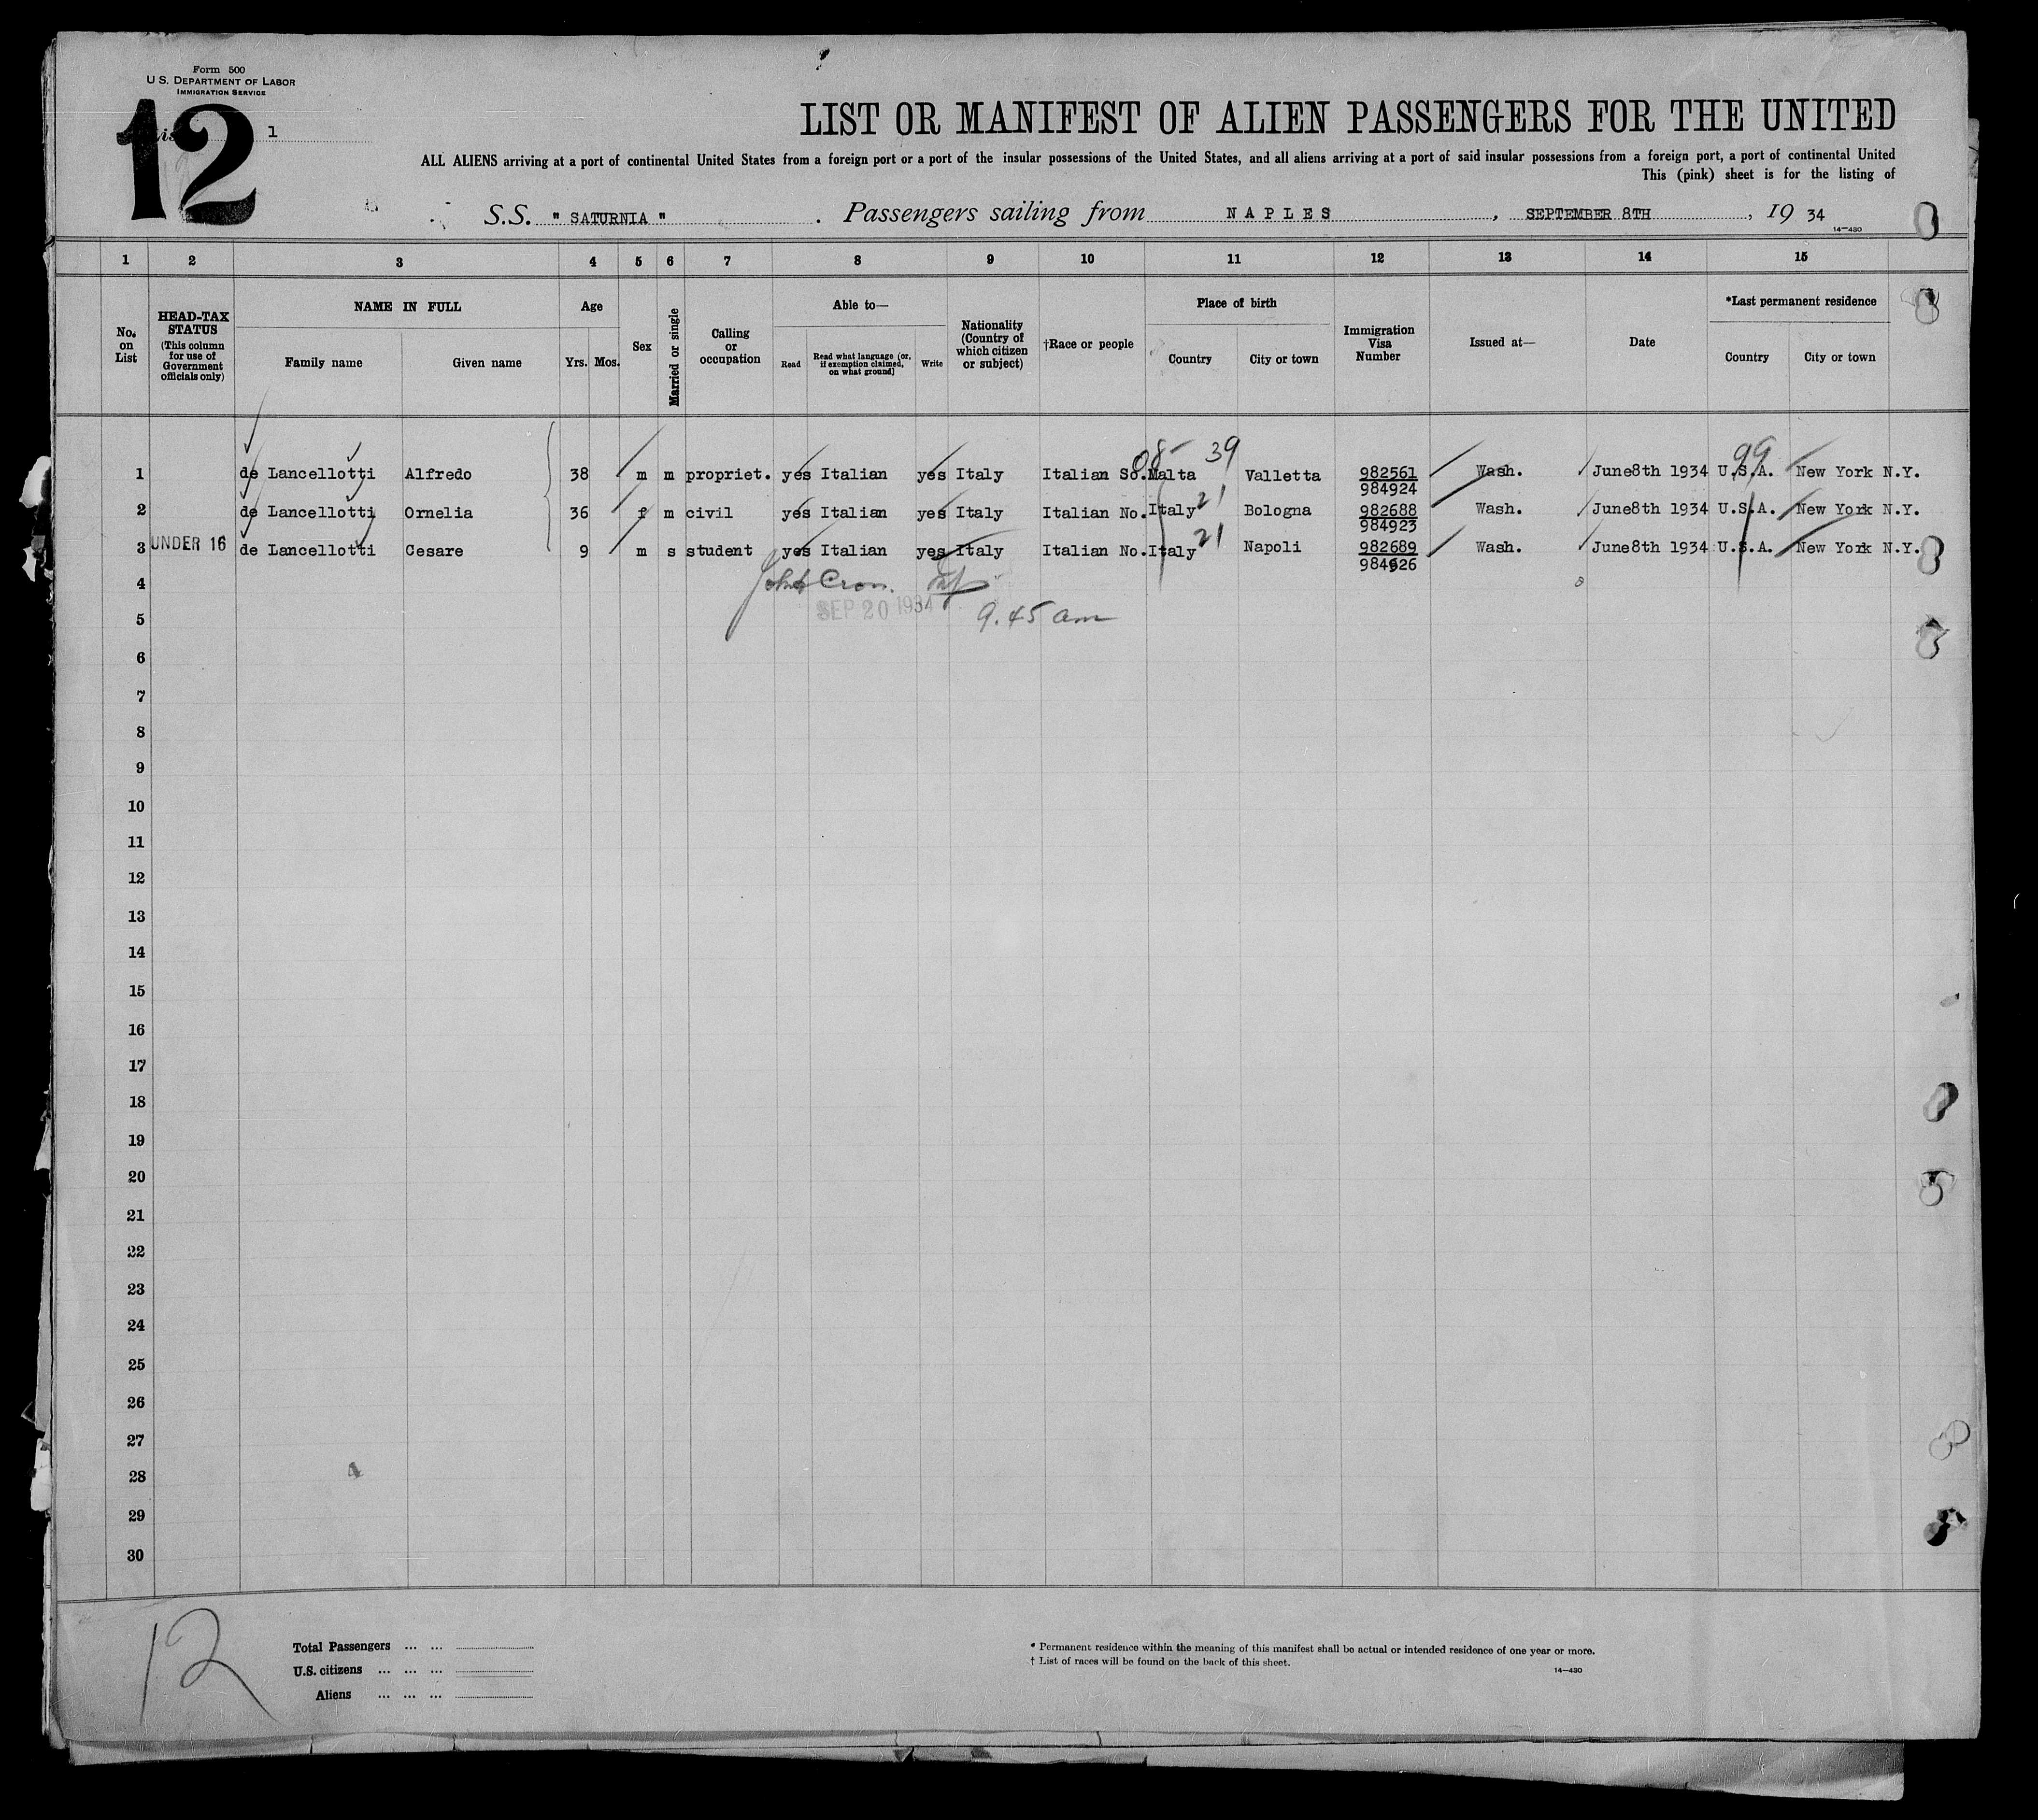 Form 500
U.S. DEPARTMENT OF LABOR
IMMIGRATION SERVICE
12
1
LIST OR MANIFEST OF ALIEN PASSENGERS FOR THE UNITED
ALL ALIENS arriving at a port of continental United States from a foreign port or a port of the insular possessions of the United States, and all aliens arriving at a port of said insular possessions from a foreign port, a port of continental United
This (pink) sheet is for the listing of
S.S. " SATURNIA " . Passengers sailing from NAPLES , SEPTEMBER 8TH , 19 34
14—430
1 2 3 4 5 6 7 8 9 10 11 12 13 14 15
No. on List
HEAD-TAX STATUS
(This column for use of Government officials only)
NAME IN FULL
Family name Given name
Age
Yrs. Mos.
Sex
Married or single
Calling or occupation
Able to—
Read Read what language (or, if exemption claimed, on what ground) Write
Nationality (Country of which citizen or subject)
†Race or people
Place of birth
Country City or town
Immigration Visa Number
Issued at—
Date
*Last permanent residence
Country City or town
08 39 99
1 de Lancellotti Alfredo 38 m m propriet. yes Italian yes Italy Italian So. Malta Valletta 982561 Wash. June8th 1934 U.S.A. New York N.Y.
984924
2 de Lancellotti Ornelia 36 f m civil yes Italian yes Italy Italian No. Italy 21 Bologna 982688 Wash. June8th 1934 U.S.A. New York N.Y.
984923
3 UNDER 16 de Lancellotti Cesare 9 m s student yes Italian yes Italy Italian No. Italy 21 Napoli 982689 Wash. June8th 1934 U.S.A. New York N.Y.
984926
4
SEP 20 1934
5 9.45 am
6
7
8
9
10
11
12
13
14
15
16
17
18
19
20
21
22
23
24
25
26
27
28
29
30
12
Total Passengers ... ...
U.S. citizens ... ... ...
Aliens ... ... ...
* Permanent residence within the meaning of this manifest shall be actual or intended residence of one year or more.
† List of races will be found on the back of this sheet.
14—430